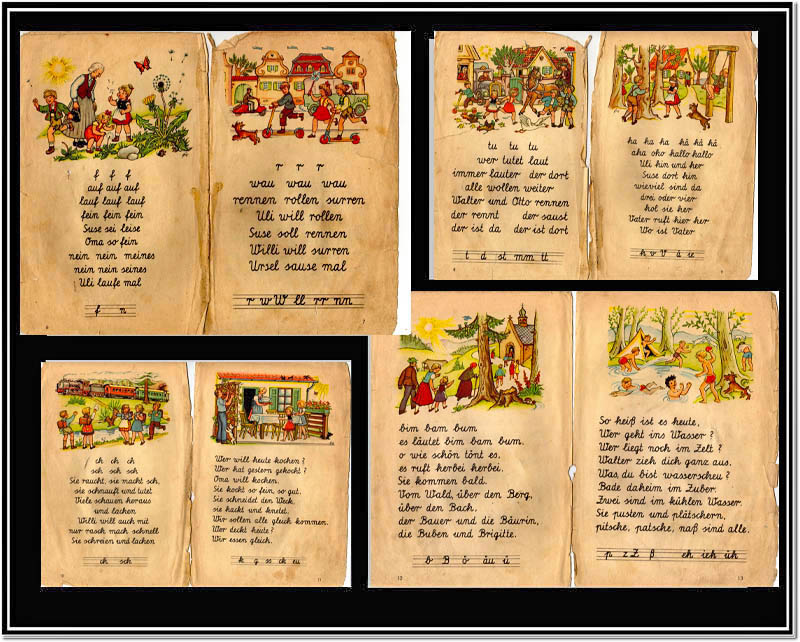 f f f
auf auf auf
lauf lauf lauf
fein fein fein
Suse sei leise
Oma so fein
nein nein meines
nein nein seines
Uli laufe mal
f n
6
r r r
wau wau wau
rennen rollen surren
Uli will rollen
Suse soll rennen
Willi will surren
Ursel sause mal
r w W ll rr nn
7
tu tu tu
wer tutet laut
immer lauter der dort
alle wollen weiter
Walter und Otto rennen
der rennt der saust
der ist da der ist dort
t d st mm tt
8
ha ha ha hä hä hä
aha oho hallo hallo
Uli hin und her
Suse dort hin
wieviel sind da
drei oder vier
hol sie her
Vater ruft hier her
Wo ist Vater
h v V ä ie
9
ch ch ch
sch sch sch
Sie raucht, sie macht sch,
sie schnauft und tutet
Viele schauen heraus
und lachen
Willi will auch mit
nur rasch mach schnell
Sie schreien und lachen
ch sch
10
Wer will heute kochen?
Wer hat gestern gekocht?
Oma will kochen.
Sie kocht so fein, so gut.
Sie schneidet den Weck,
sie hackt und knetet.
Wir sollen alle gleich kommen.
Wer deckt heute?
Wir essen gleich.
k g ss ck eu
11
bim bam bum
es läutet bim bam bum.
o wie schön tönt es,
es ruft herbei herbei.
Sie kommen bald.
Vom Wald, über den Berg,
über den Bach,
der Bauer und die Bäurin,
die Buben und Brigitte.
b B ö äu ü
12
So heiß ist es heute,
Wer geht ins Wasser?
Wer liegt noch im Zelt?
Walter zieh dich ganz aus.
Was, du bist wasserscheu?
Bade daheim im Zuber.
Zwei sind im kühlen Wasser.
Sie pusten und plätschern,
pitsche, patsche, naß sind alle.
p z Z ß eh ieh üh
13